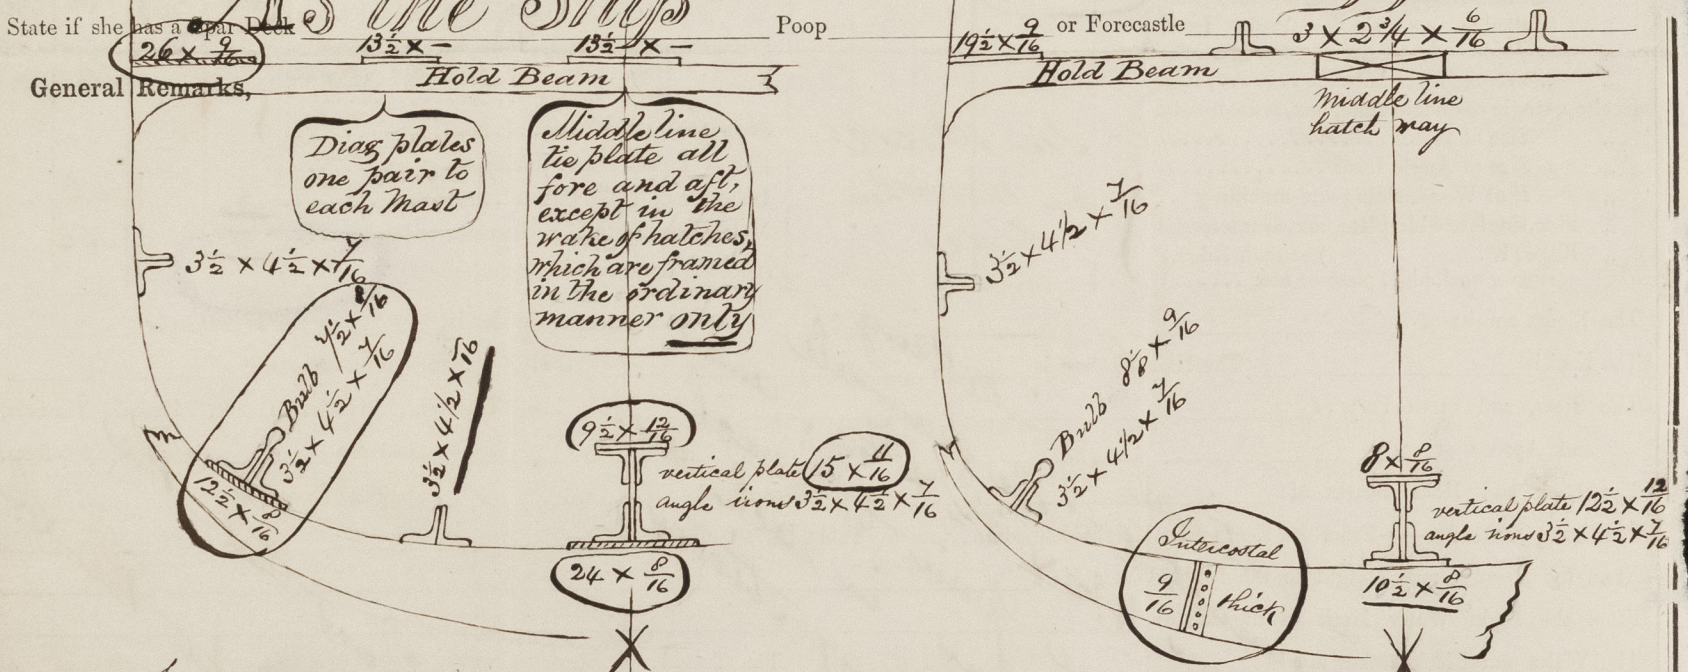 As the Ship
State if she has a Spar Deck
Poop
or Forecastle
26 × 9/16
13½ × –
13½ × –
Hold Beam
General Remarks,
Diag plates
one pair to
each Mast
Middle line
tie plate all
fore and aft,
except in the
wake of hatches,
which are framed
in the ordinary
manner only
3½ × 4½ × 7/16
Bulb 7½ × 8/16
3½ × 4½ × 7/16
12½ × 8/16
3½ × 4½ × 7/16
9½ × 12/16
vertical plate 15 × 11/16
angle irons 3½ × 4½ × 7/16
24 × 8/16
19½ × 9/16
3 × 2¾ × 6/16
Hold Beam
Middle line
hatch way
3½ × 4½ × 7/16
Bulb 8⅛ × 9/16
3½ × 4½ × 7/16
Intercostal
9/16 thick
8 × 8/16
vertical plate 12½ × 12/16
angle irons 3½ × 4½ × 7/16
10½ × 8/16